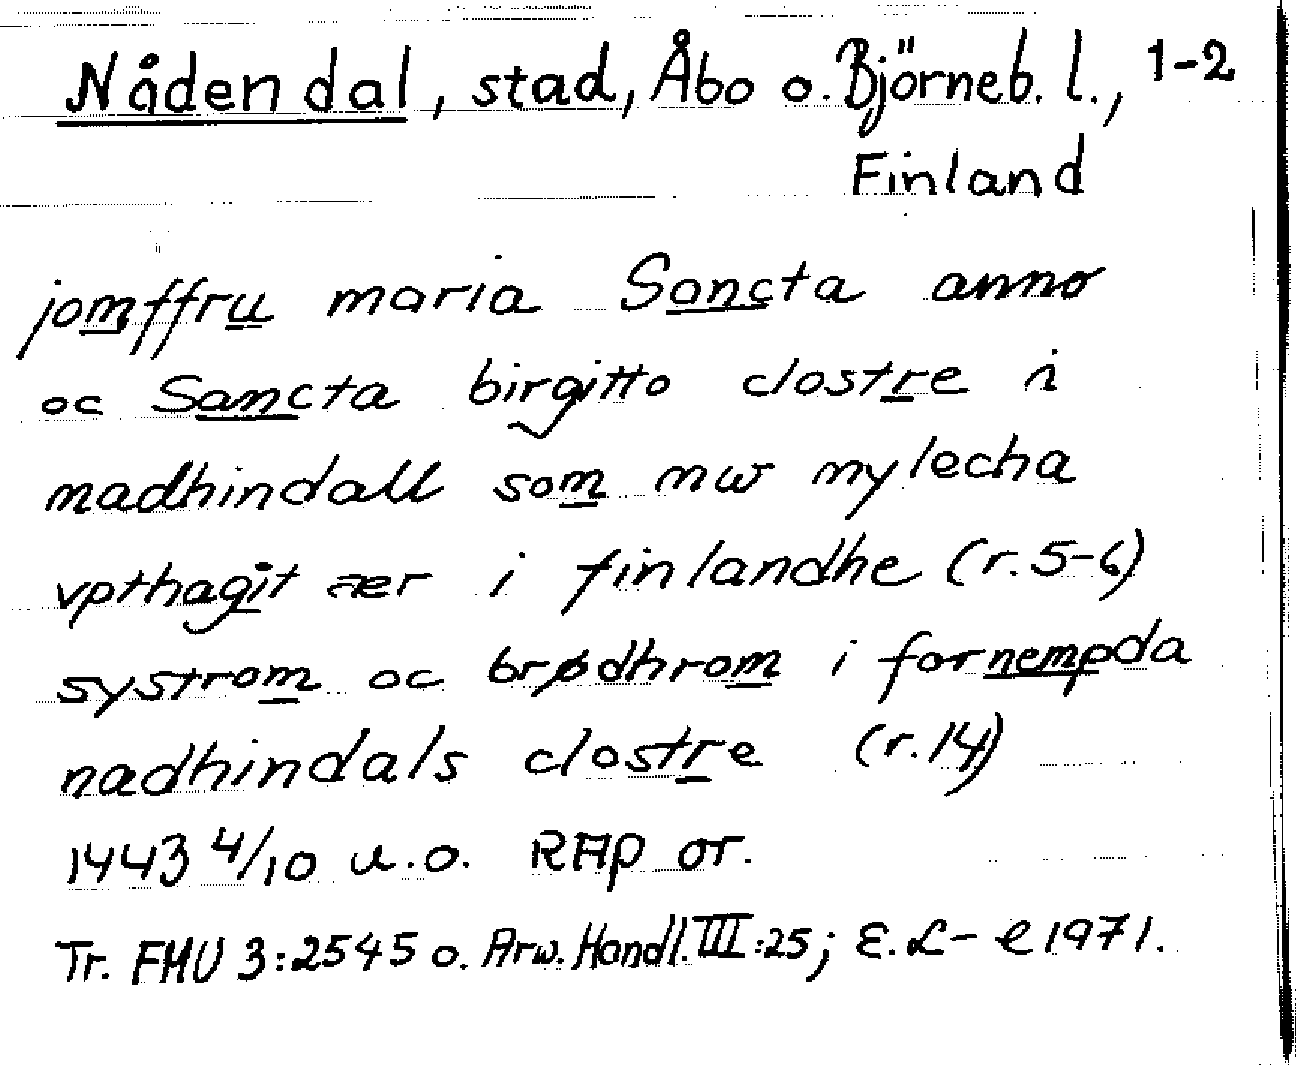 Nådendal, stad, Åbo o. Björneb. l., 1-2
Finland
jomffru maria Sancta anno
oc Sancta birgitto clostre i
nadhindall som nw nylecha
vpthagit ær i finlandhe (r. 5-6)
systrom oc brødhrom i fornempda
nadhindals clostre (r. 14)
1443 4/10 u.o. RAp or.
Tr. FMU 3:2545 o. Arw. Handl. III:25; E. L-e 1971.